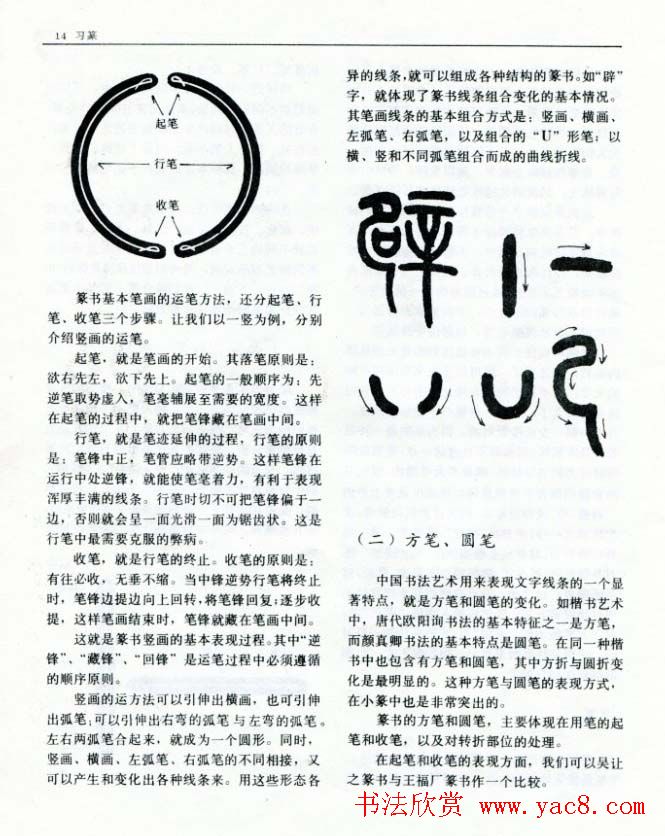 14 习篆
起笔
行笔
收笔
篆书基本笔画的运笔方法，还分起笔、行
笔、收笔三个步骤。让我们以一竖为例，分别
介绍竖画的运笔。
起笔，就是笔画的开始。其落笔原则是：
欲右先左，欲下先上。起笔的一般顺序为：先
逆笔取势虚入，笔毫辅展至需要的宽度。这样
在起笔的过程中，就把笔锋藏在笔画中间。
行笔，就是笔迹延伸的过程，行笔的原则
是：笔锋中正，笔管应略带逆势。这样笔锋在
运行中处逆锋，就能使笔毫着力，有利于表现
浑厚丰满的线条。行笔时切不可把笔锋偏于一
边，否则就会呈一面光滑一面为锯齿状。这是
行笔中最需要克服的弊病。
收笔，就是行笔的终止。收笔的原则是：
有往必收，无垂不缩。当中锋逆势行笔将终止
时，笔锋边提边向上回转，将笔锋回复；逐步收
提，这样笔画结束时，笔锋就藏在笔画中间。
这就是篆书竖画的基本表现过程。其中“逆
锋”、“藏锋”、“回锋” 是运笔过程中必须遵循
的顺序原则。
竖画的运方法可以引伸出横画，也可引伸
出弧笔；可以引伸出右弯的弧笔与左弯的弧笔。
左右两弧笔合起来，就成为一个圆形。同时，
竖画、横画、左弧笔、右弧笔的不同相接，又
可以产生和变化出各种线条来。用这些形态各
异的线条，就可以组成各种结构的篆书。如“辟”
字，就体现了篆书线条组合变化的基本情况。
其笔画线条的基本组合方式是：竖画、横画、
左弧笔、右弧笔，以及组合的“U”形笔；以
横、竖和不同弧笔组合而成的曲线折线。
辟
（二）方笔、圆笔
中国书法艺术用来表现文字线条的一个显
著特点，就是方笔和圆笔的变化。如楷书艺术
中，唐代欧阳询书法的基本特征之一是方笔，
而颜真卿书法的基本特点是圆笔。在同一种楷
书中也包含有方笔和圆笔，其中方折与圆折变
化是最明显的。这种方笔与圆笔的表现方式，
在小篆中也是非常突出的。
篆书的方笔和圆笔，主要体现在用笔的起
笔和收笔，以及对转折部位的处理。
在起笔和收笔的表现方面，我们可以吴让
之篆书与王福厂篆书作一个比较。
书法欣赏 www.yac8.com